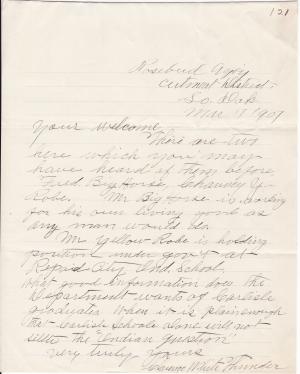 121
Rosebud Agcy
Cutmeat District
So. Dak
Mar 1 1907
Your Welcome
There are two
here which you may
have heard of them before
Fred Big Horse, Chauncy Y.
Robe. Mr Big Horse is working
for his own living good as
any man would do.
Mr Yellow Robe is holding
position under gov't at
Rapid City Ind. School.
what good information does the
Department wants of Carlisle
graduates when it is plain enough
that Carlisle Schools alone will not
settle the "Indian question"
very truly yours
White Thunder